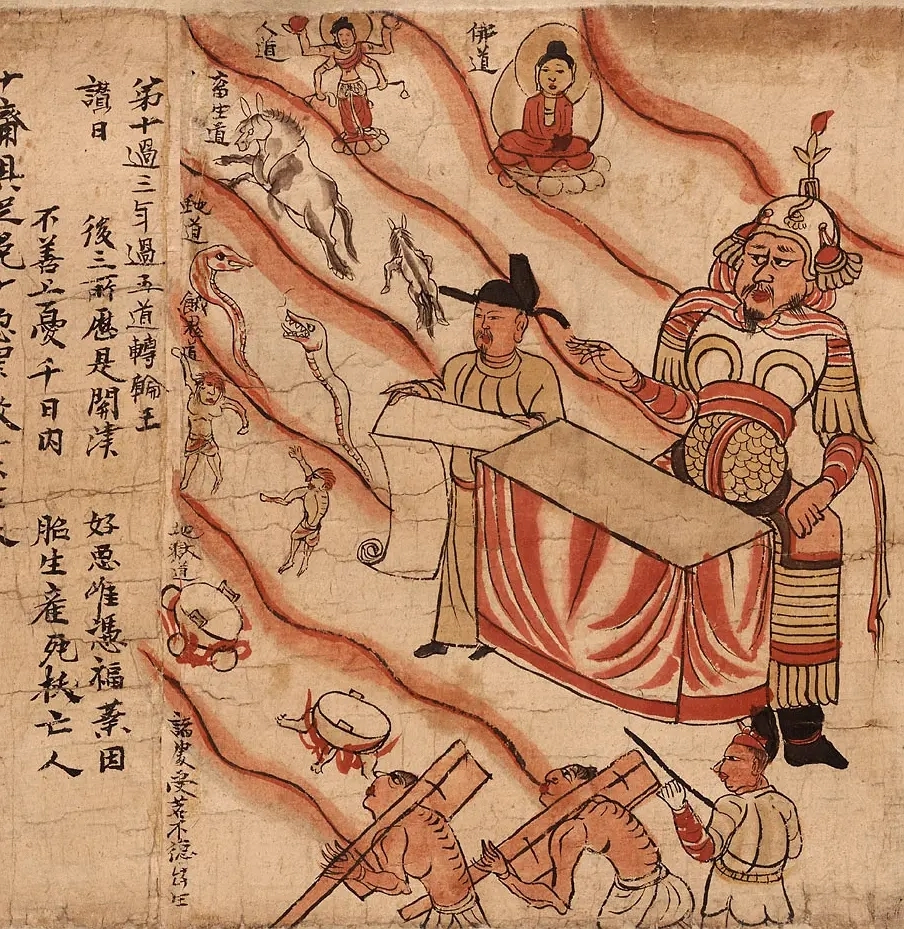 佛道
人道
畜生道
餓鬼道
地獄道
受苦不
第十過三年過五道轉輪王
讃曰 後三所歷是開津 好惡唯憑福業因
不善上憂千日內 胎生產死拔亡人
十齋具足免十惡罪